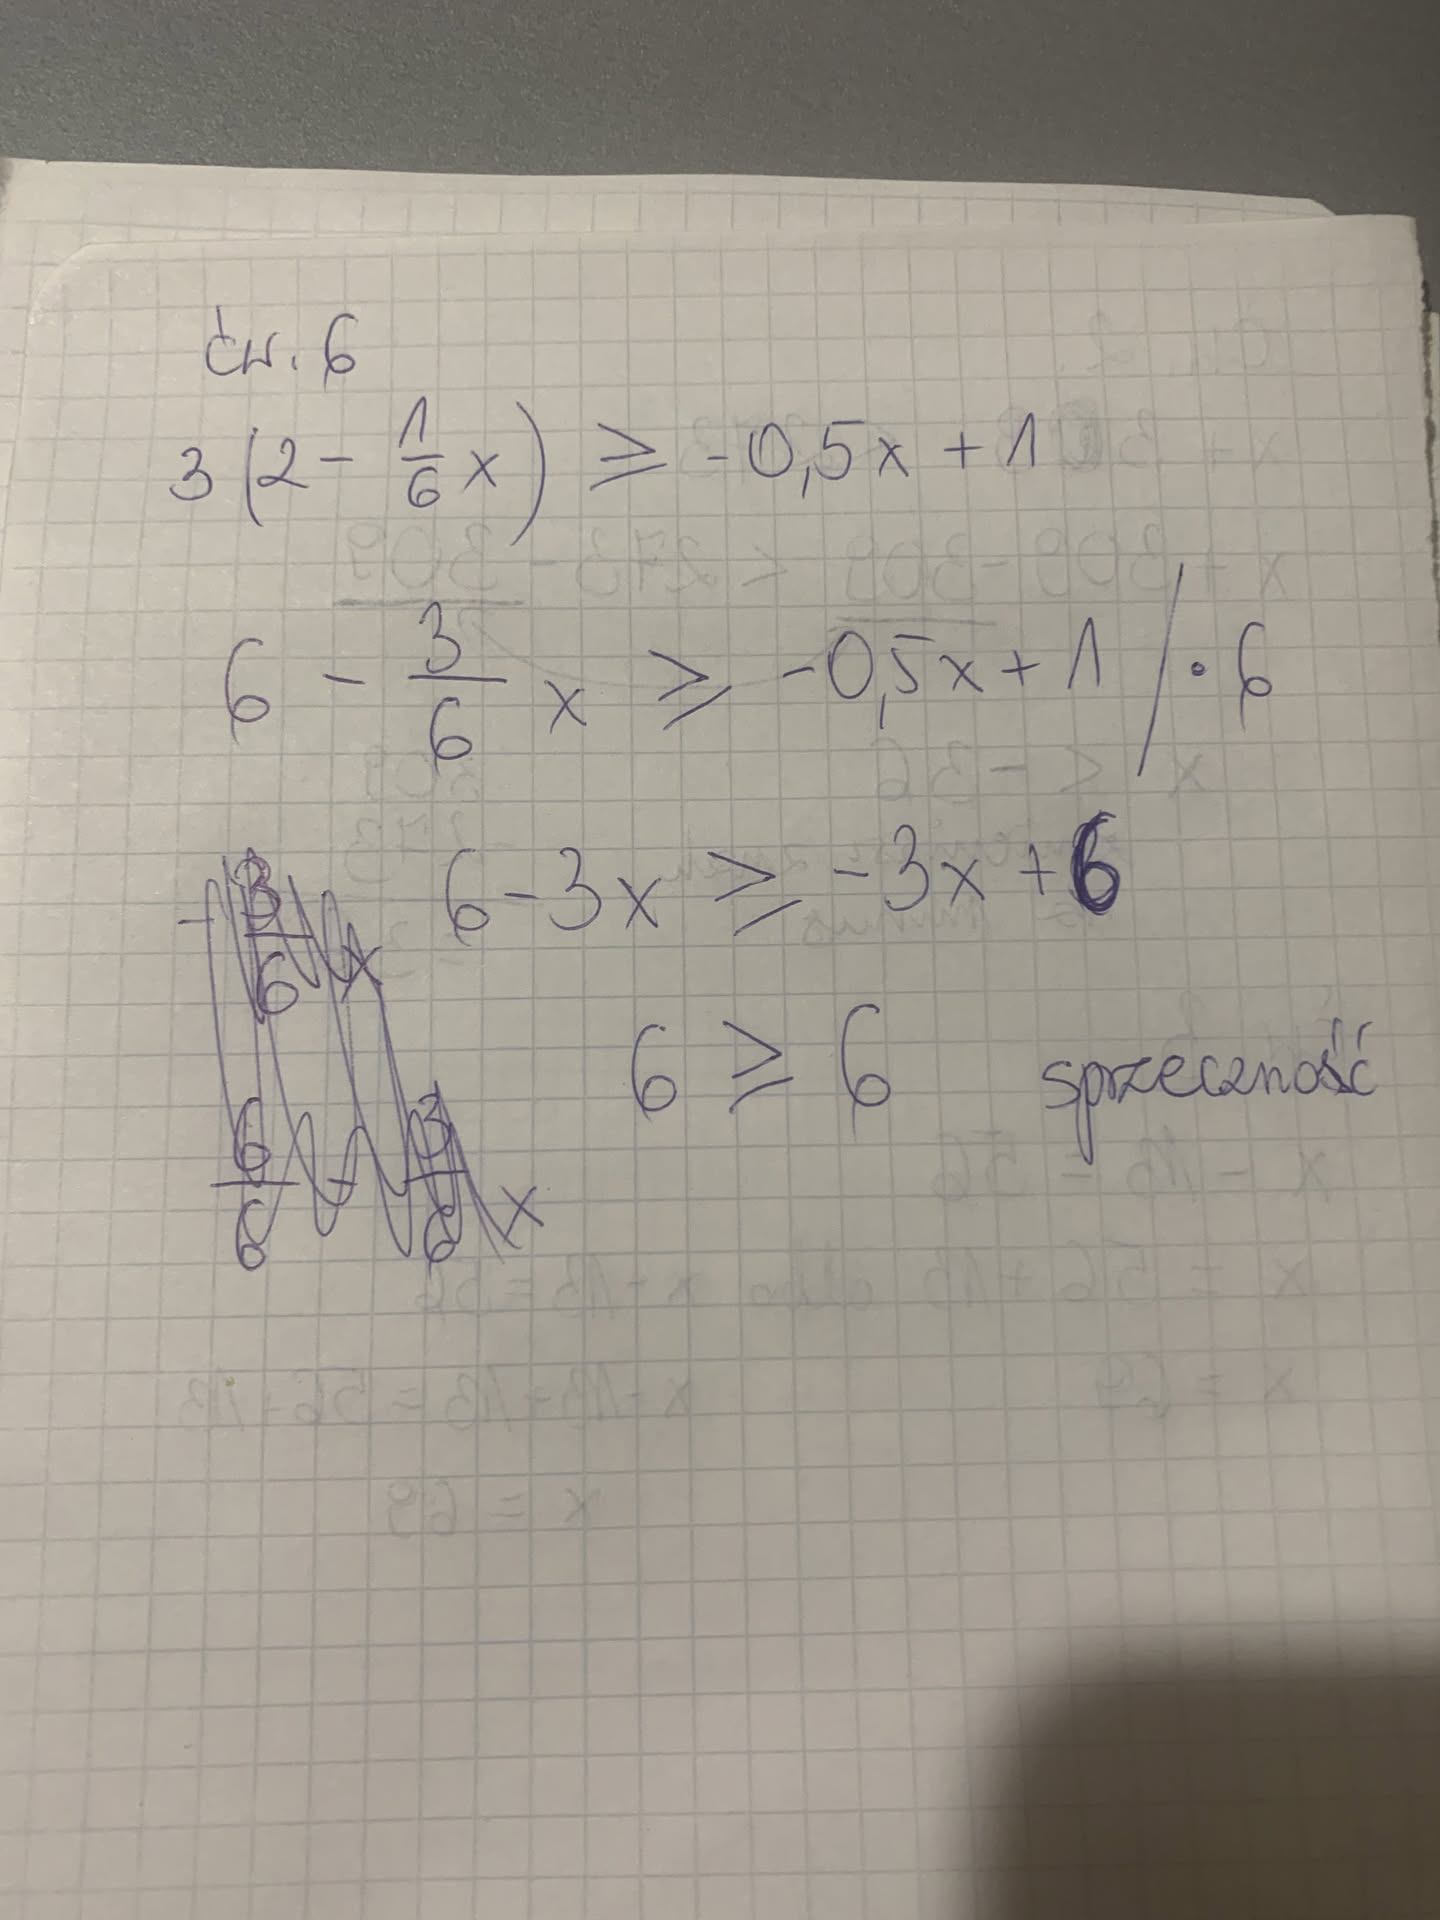 ćw. 6
3(2 - 1/6 x) ≥ -0,5x + 1
6 - 3/6 x ≥ -0,5x + 1 / · 6
6 - 3x ≥ -3x + 6
- 3/6 x
6 ≥ 6 sprzeczność
6/6 - 3/6 x